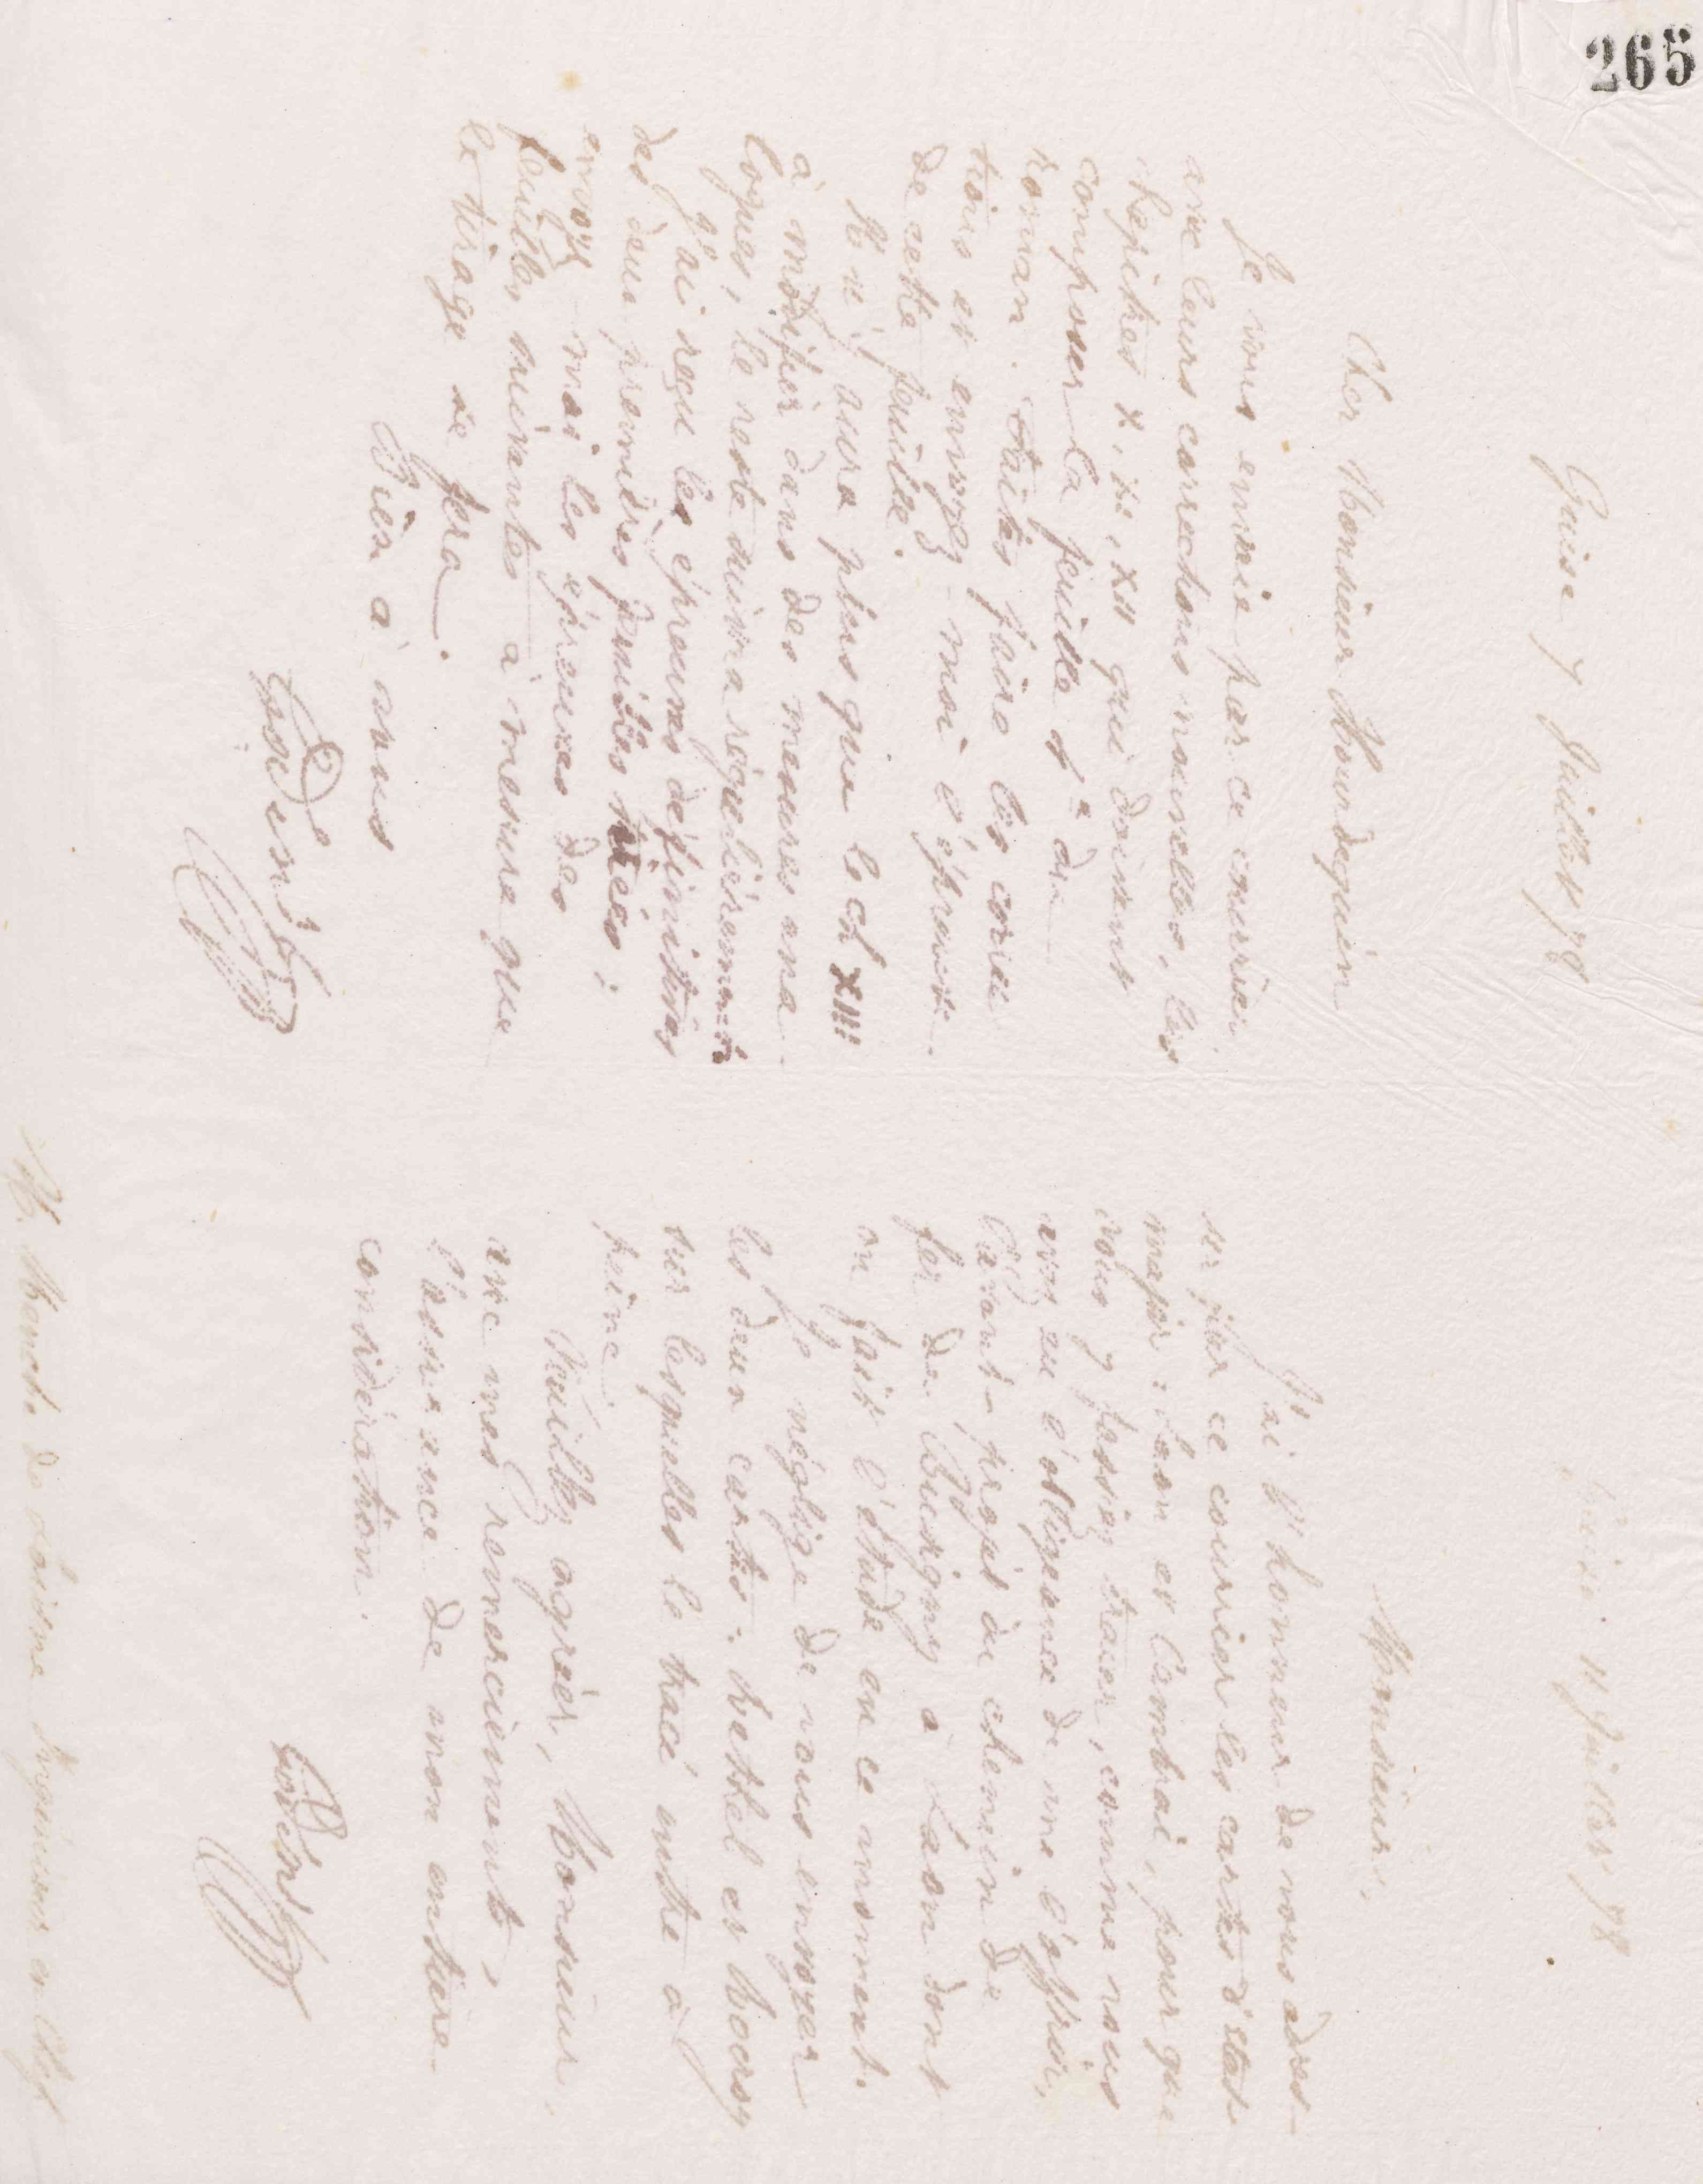 265
Guise 7 Juillet 78
Cher Monsieur Mourdequin
Je vous envoie par ce courrier
avec leurs corrections nouvelles, les
chapitres X, XI, XII qui doivent
composer la feuille 4e du
roman. Faites faire les correc
tions et envoyez-moi l'épreuve
de cette feuille.
Il n'y aura plus que le ch XIII
à modifier dans des mesures ana
logues, le reste suivra régulièrement
J'ai reçu les épreuves définitives
des deux premières feuilles tirées ;
envoyez-moi les épreuves des
feuilles suivantes à mesure que
le tirage se fera.
Bien à vous
Godin
11 Juillet 78
Monsieur,
J'ai l'honneur de vous adres-
ser par ce courrier les cartes d'état
major : Laon et Cambrai, pour que
vous y fassiez tracer, comme vous
avez eu l'obligeance de me l'offrir,
l'avant-projet du chemin de
fer de Busigny à Laon dont
on fait l'étude en ce moment.
Je néglige de vous envoyer
les deux cartes : et Rocroy
sur lesquelles le tracé entre à
peine
Veuillez agréer, Monsieur,
avec mes remerciements,
l'assurance de mon entière
considération.
Godin
M. de Ingénieur en Chef